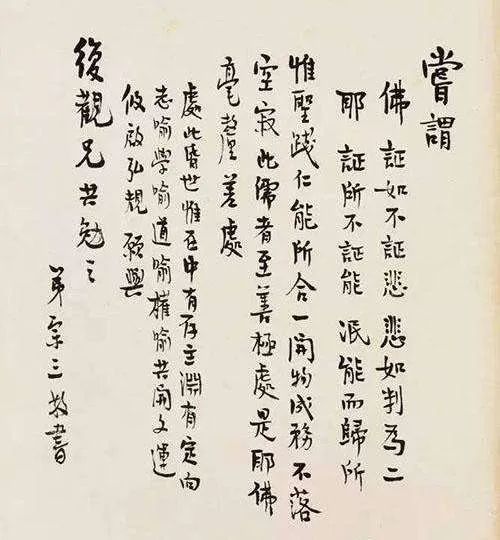 嘗謂
佛 証如不証悲 悲如判為二
耶 証所不証能 泯能而歸所
惟聖踐仁能所合一開物成務不落
空寂此儒者至善極處是耶佛
毫釐差處
處此昏世惟在中有存主淵有定向
志喻學喻道喻權喻共開文運
攸啟弘規願與
復觀兄共勉之
弟宗三敬書